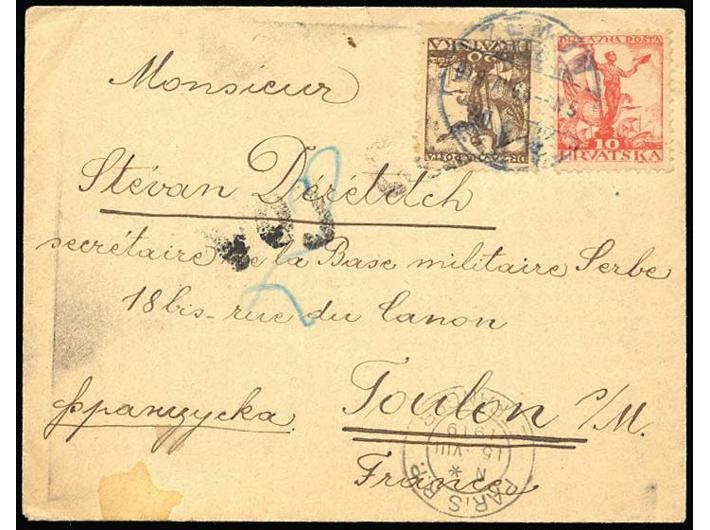 Monsieur
Stévan Dérétetch
secrétaire de la Base militaire Serbe
18 bis - rue du Canon
француска.
Toulon s/M.
France
DRŽAVNA POŠTA
20
HRVATSKA
DRŽAVNA POŠTA
10
HRVATSKA
PARIS R.P.
15 - VIII
1919